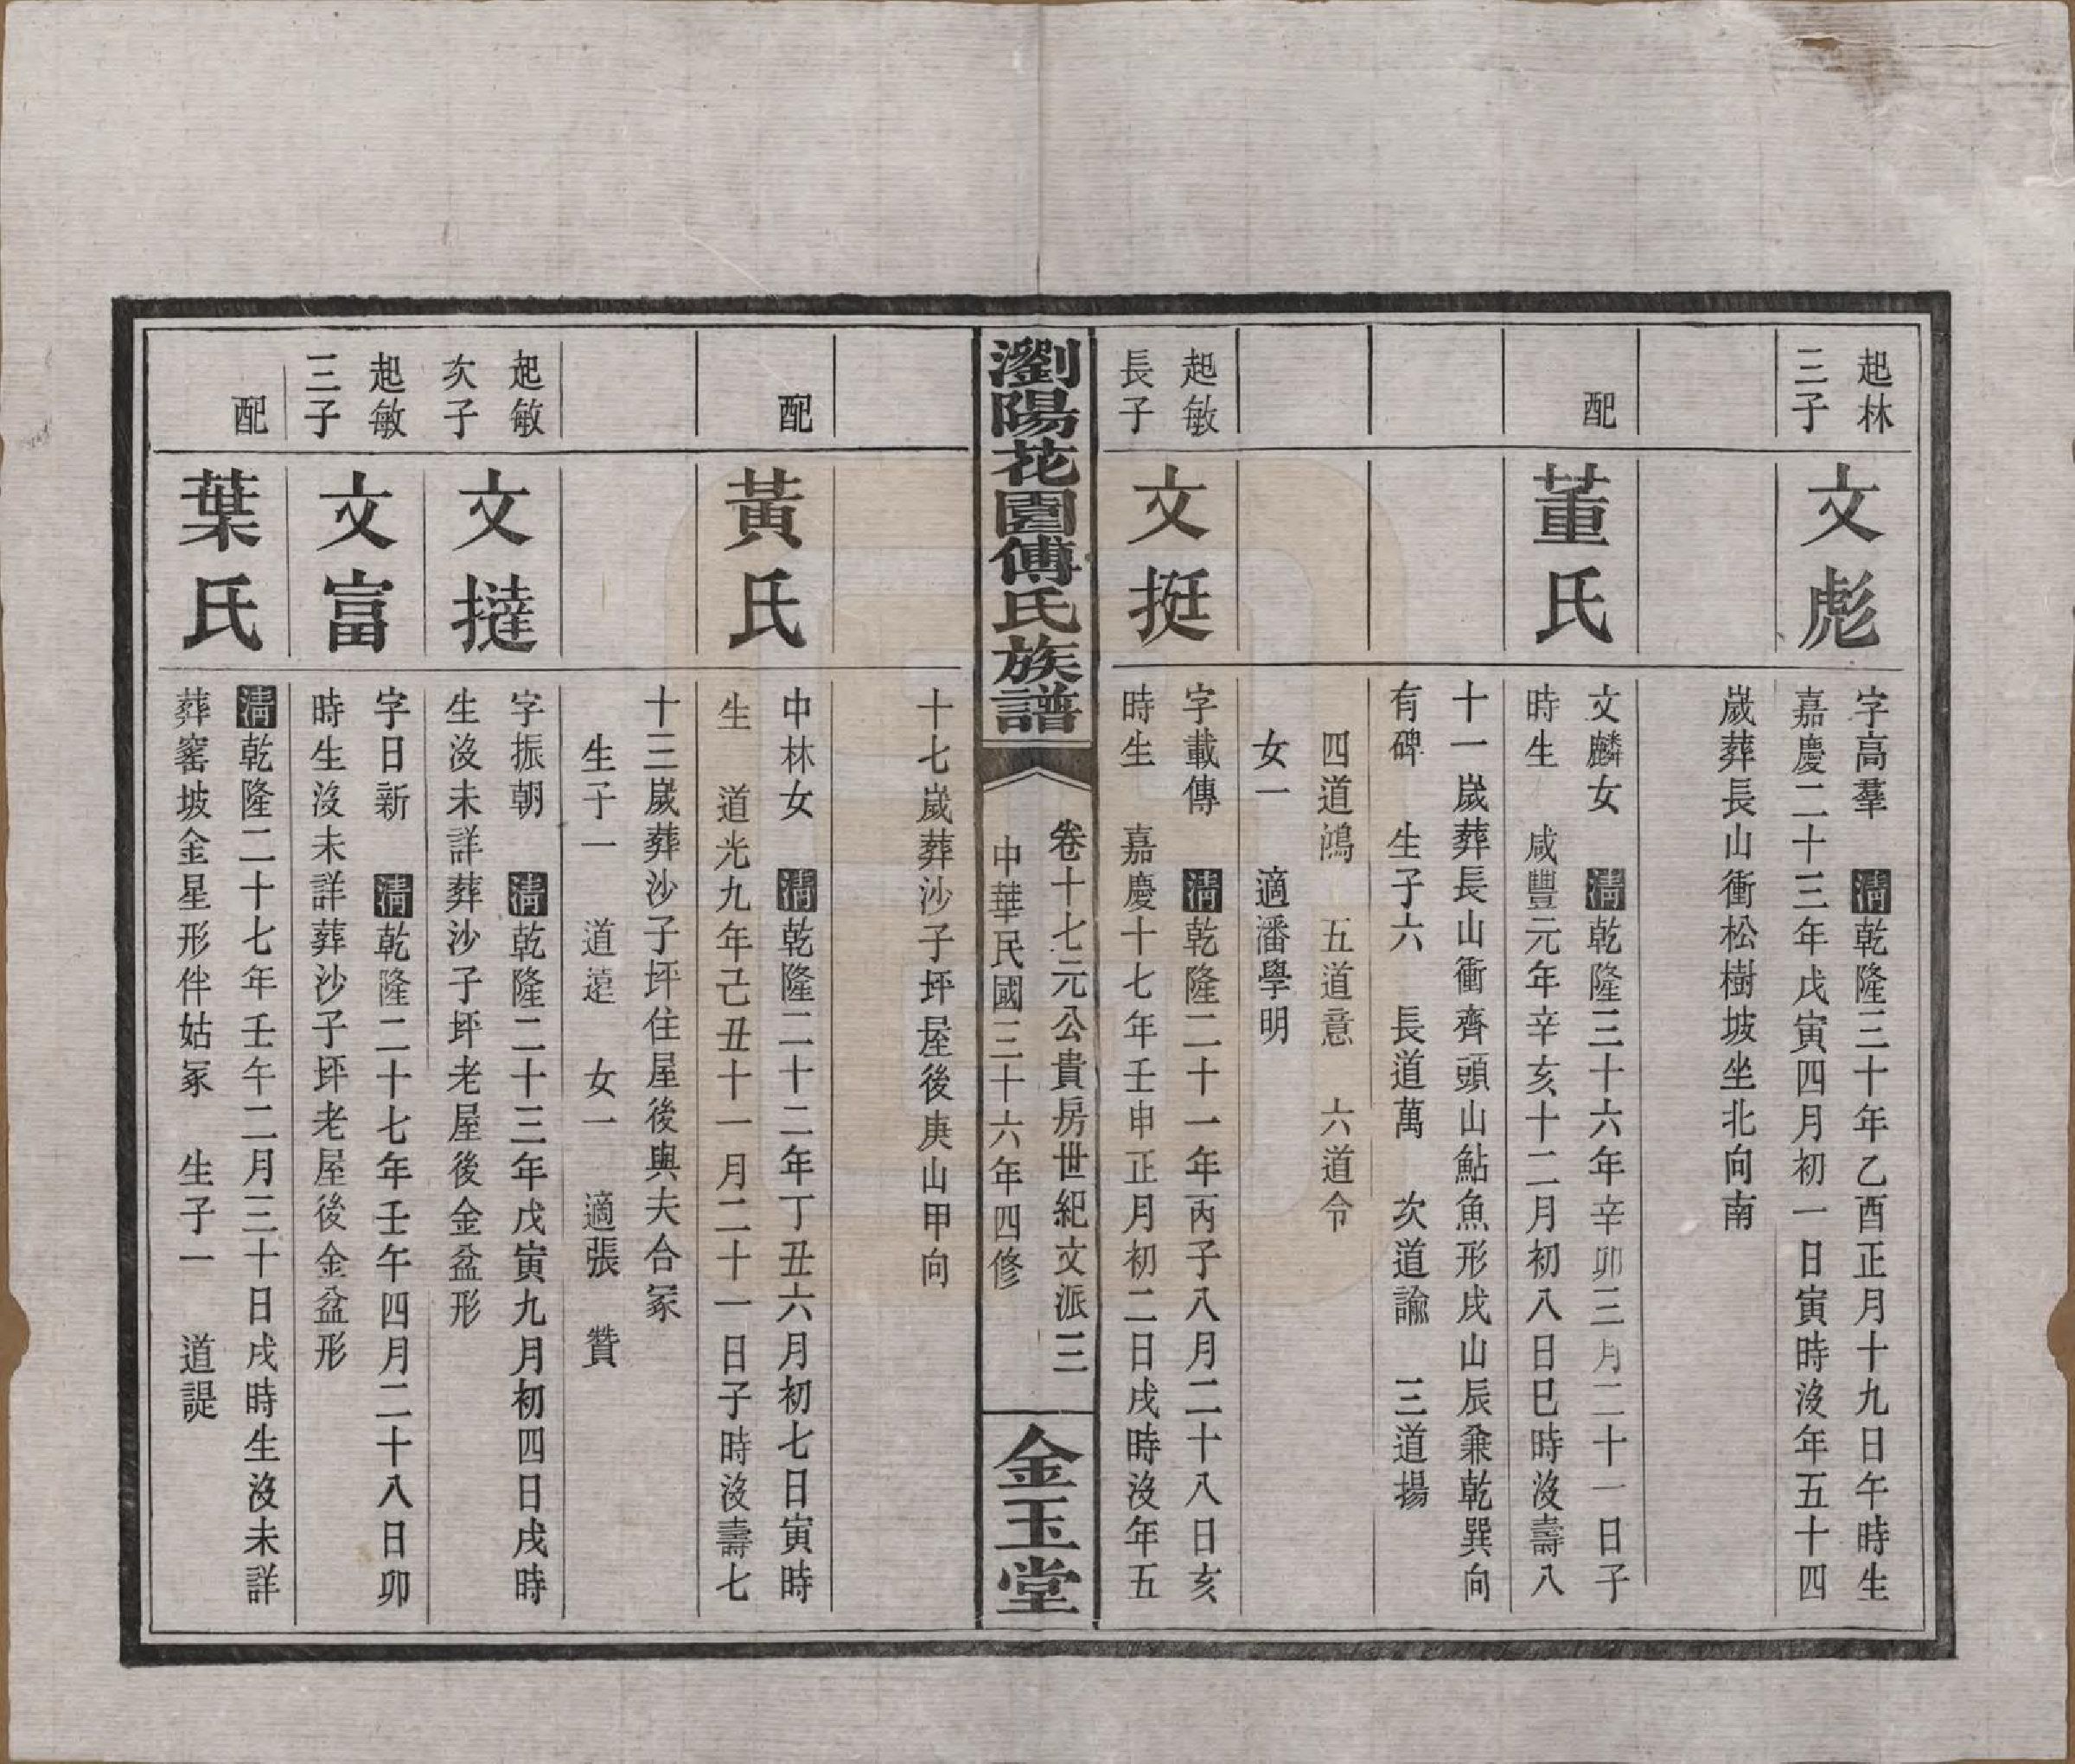 起林
三子
文彪
字高羣　清乾隆三十年乙酉正月十九日午時生
嘉慶二十三年戊寅四月初一日寅時沒年五十四
歲葬長山衝松樹坡坐北向南
配
董氏
文麟女　清乾隆三十六年辛卯三月二十一日子
時生　咸豐元年辛亥十二月初八日巳時沒壽八
十一歲葬長山衝齊頭山鮎魚形戌山辰兼乾巽向
有碑　生子六　長道萬　次道諭　三道揚
四道鴻　五道意　六道令
女一　適潘學明
起敏
長子
文挺
字載傳　清乾隆二十一年丙子八月二十八日亥
時生　嘉慶十七年壬申正月初二日戌時沒年五
瀏陽花園傅氏族譜
卷十七元公貴房世紀文派三
中華民國三十六年四修
金玉堂
十七歲葬沙子坪屋後庚山甲向
配
黃氏
中林女　清乾隆二十二年丁丑六月初七日寅時
生　道光九年己丑十一月二十一日子時沒壽七
十三歲葬沙子坪住屋後與夫合冢
生子一　道遠　女一　適張　贊
起敏
次子
文撻
字振朝　清乾隆二十三年戊寅九月初四日戌時
生沒未詳葬沙子坪老屋後金盆形
起敏
三子
文富
字日新　清乾隆二十七年壬午四月二十八日卯
時生沒未詳葬沙子坪老屋後金盆形
配
葉氏
清乾隆二十七年壬午二月三十日戌時生沒未詳
葬窰坡金星形伴姑冢　生子一　道諟